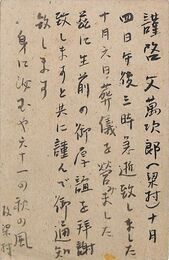 謹啓 父萬次郎(梁村)十月
四日午後三時急逝致しました
十月六日葬儀を営みました
茲に生前の御厚誼を拝謝
致しますと共に謹んで御通知
致します
身に沁むや六十一の秋の風
故梁村